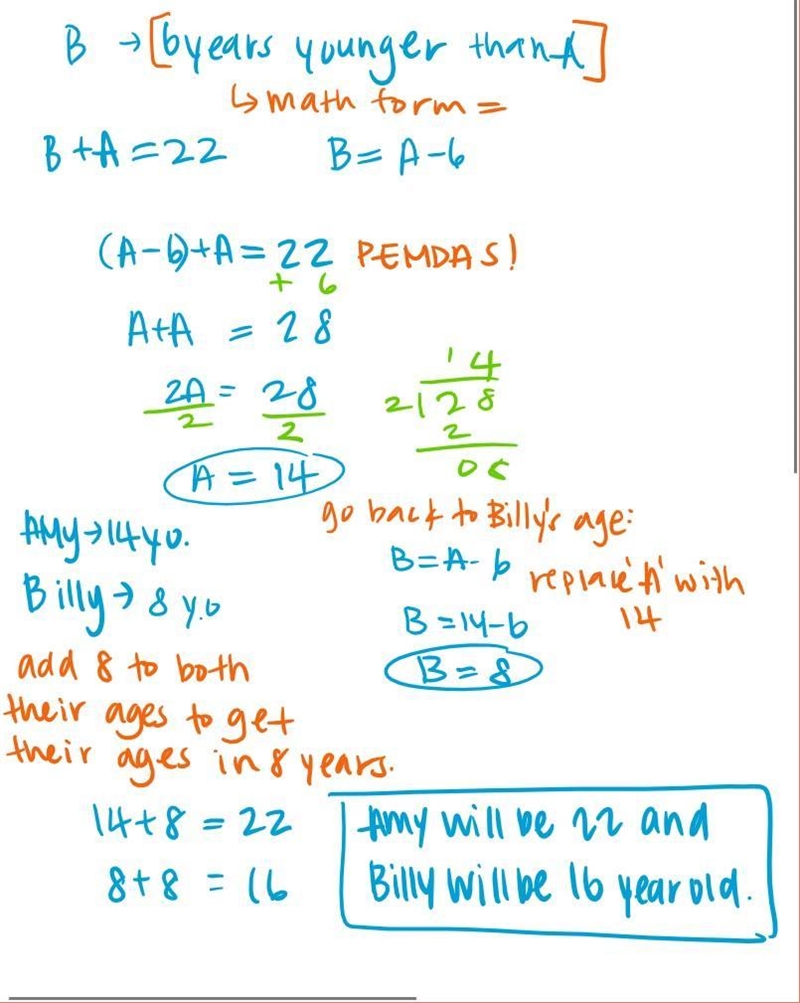 B → [6 years younger than A]
↳ math form =
B + A = 22
B = A - 6
(A - 6) + A = 22 PEMDAS!
+ 6
A + A = 28
2A = 28
2 2
14
2 | 28
2
08
A = 14
AMy → 14 y o.
Billy → 8 y.o
go back to Billy's age:
B = A - 6
replace 'A' with
14
B = 14 - 6
B = 8
add 8 to both
their ages to get
their ages in 8 years.
14 + 8 = 22
8 + 8 = 16
Amy will be 22 and
Billy will be 16 year old.